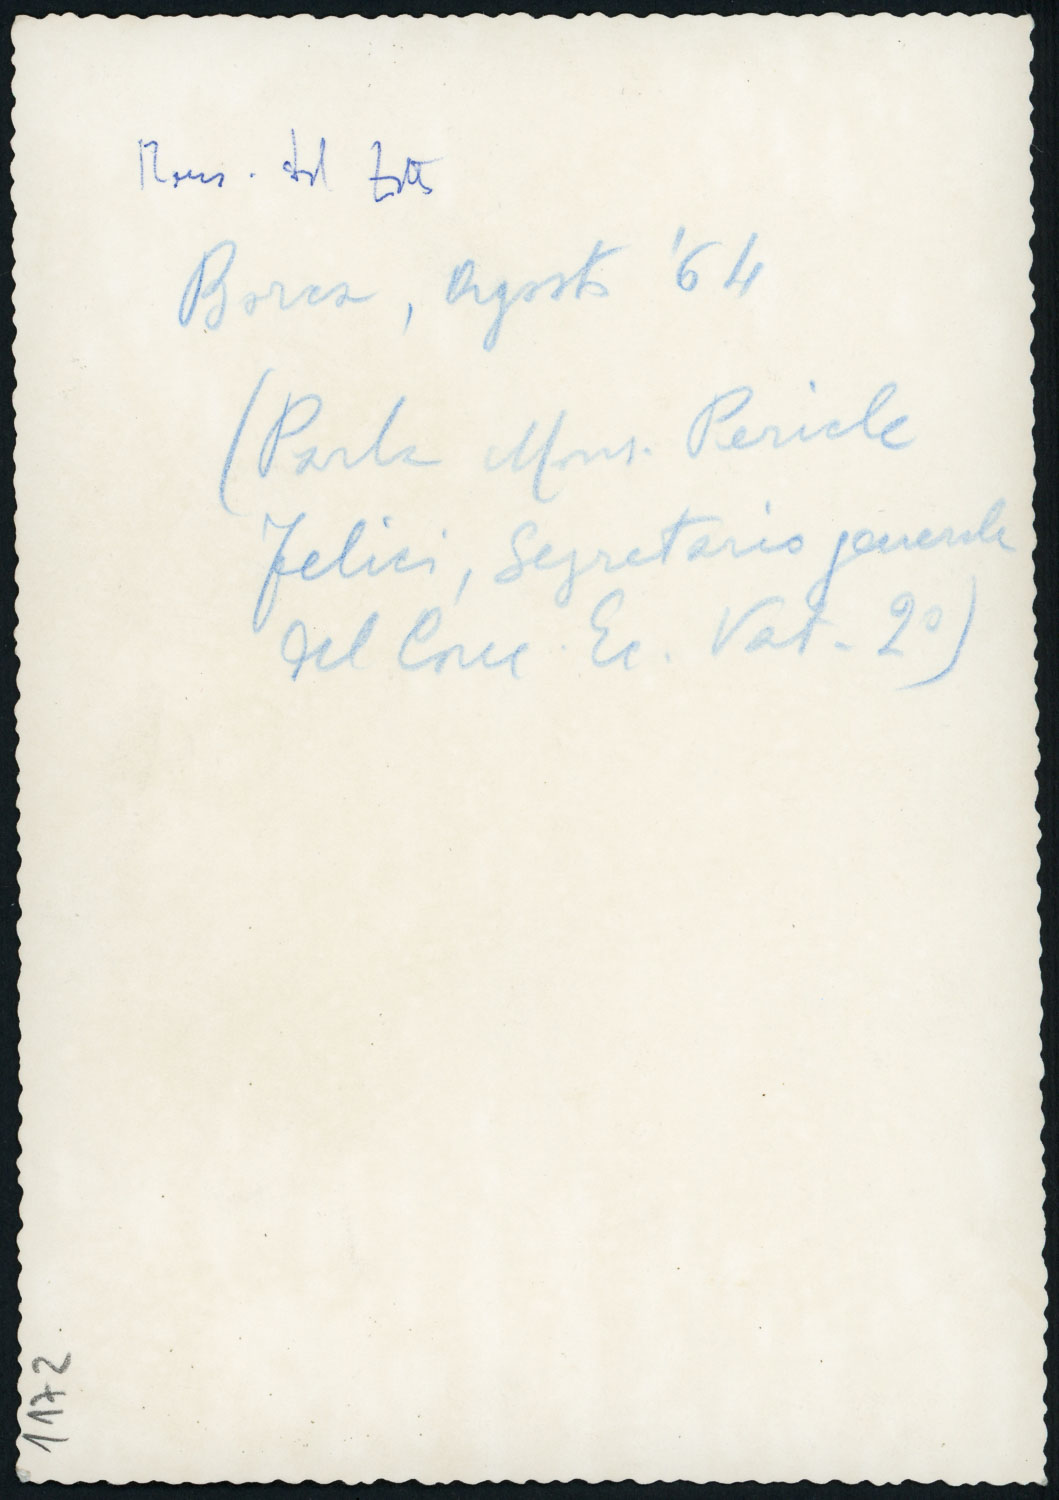 Mons. del
Borca, Agosto '64
(Parla Mons. Pericle
Felici, Segretario generale
del Conc. Ec. Vat. 2°)
1172